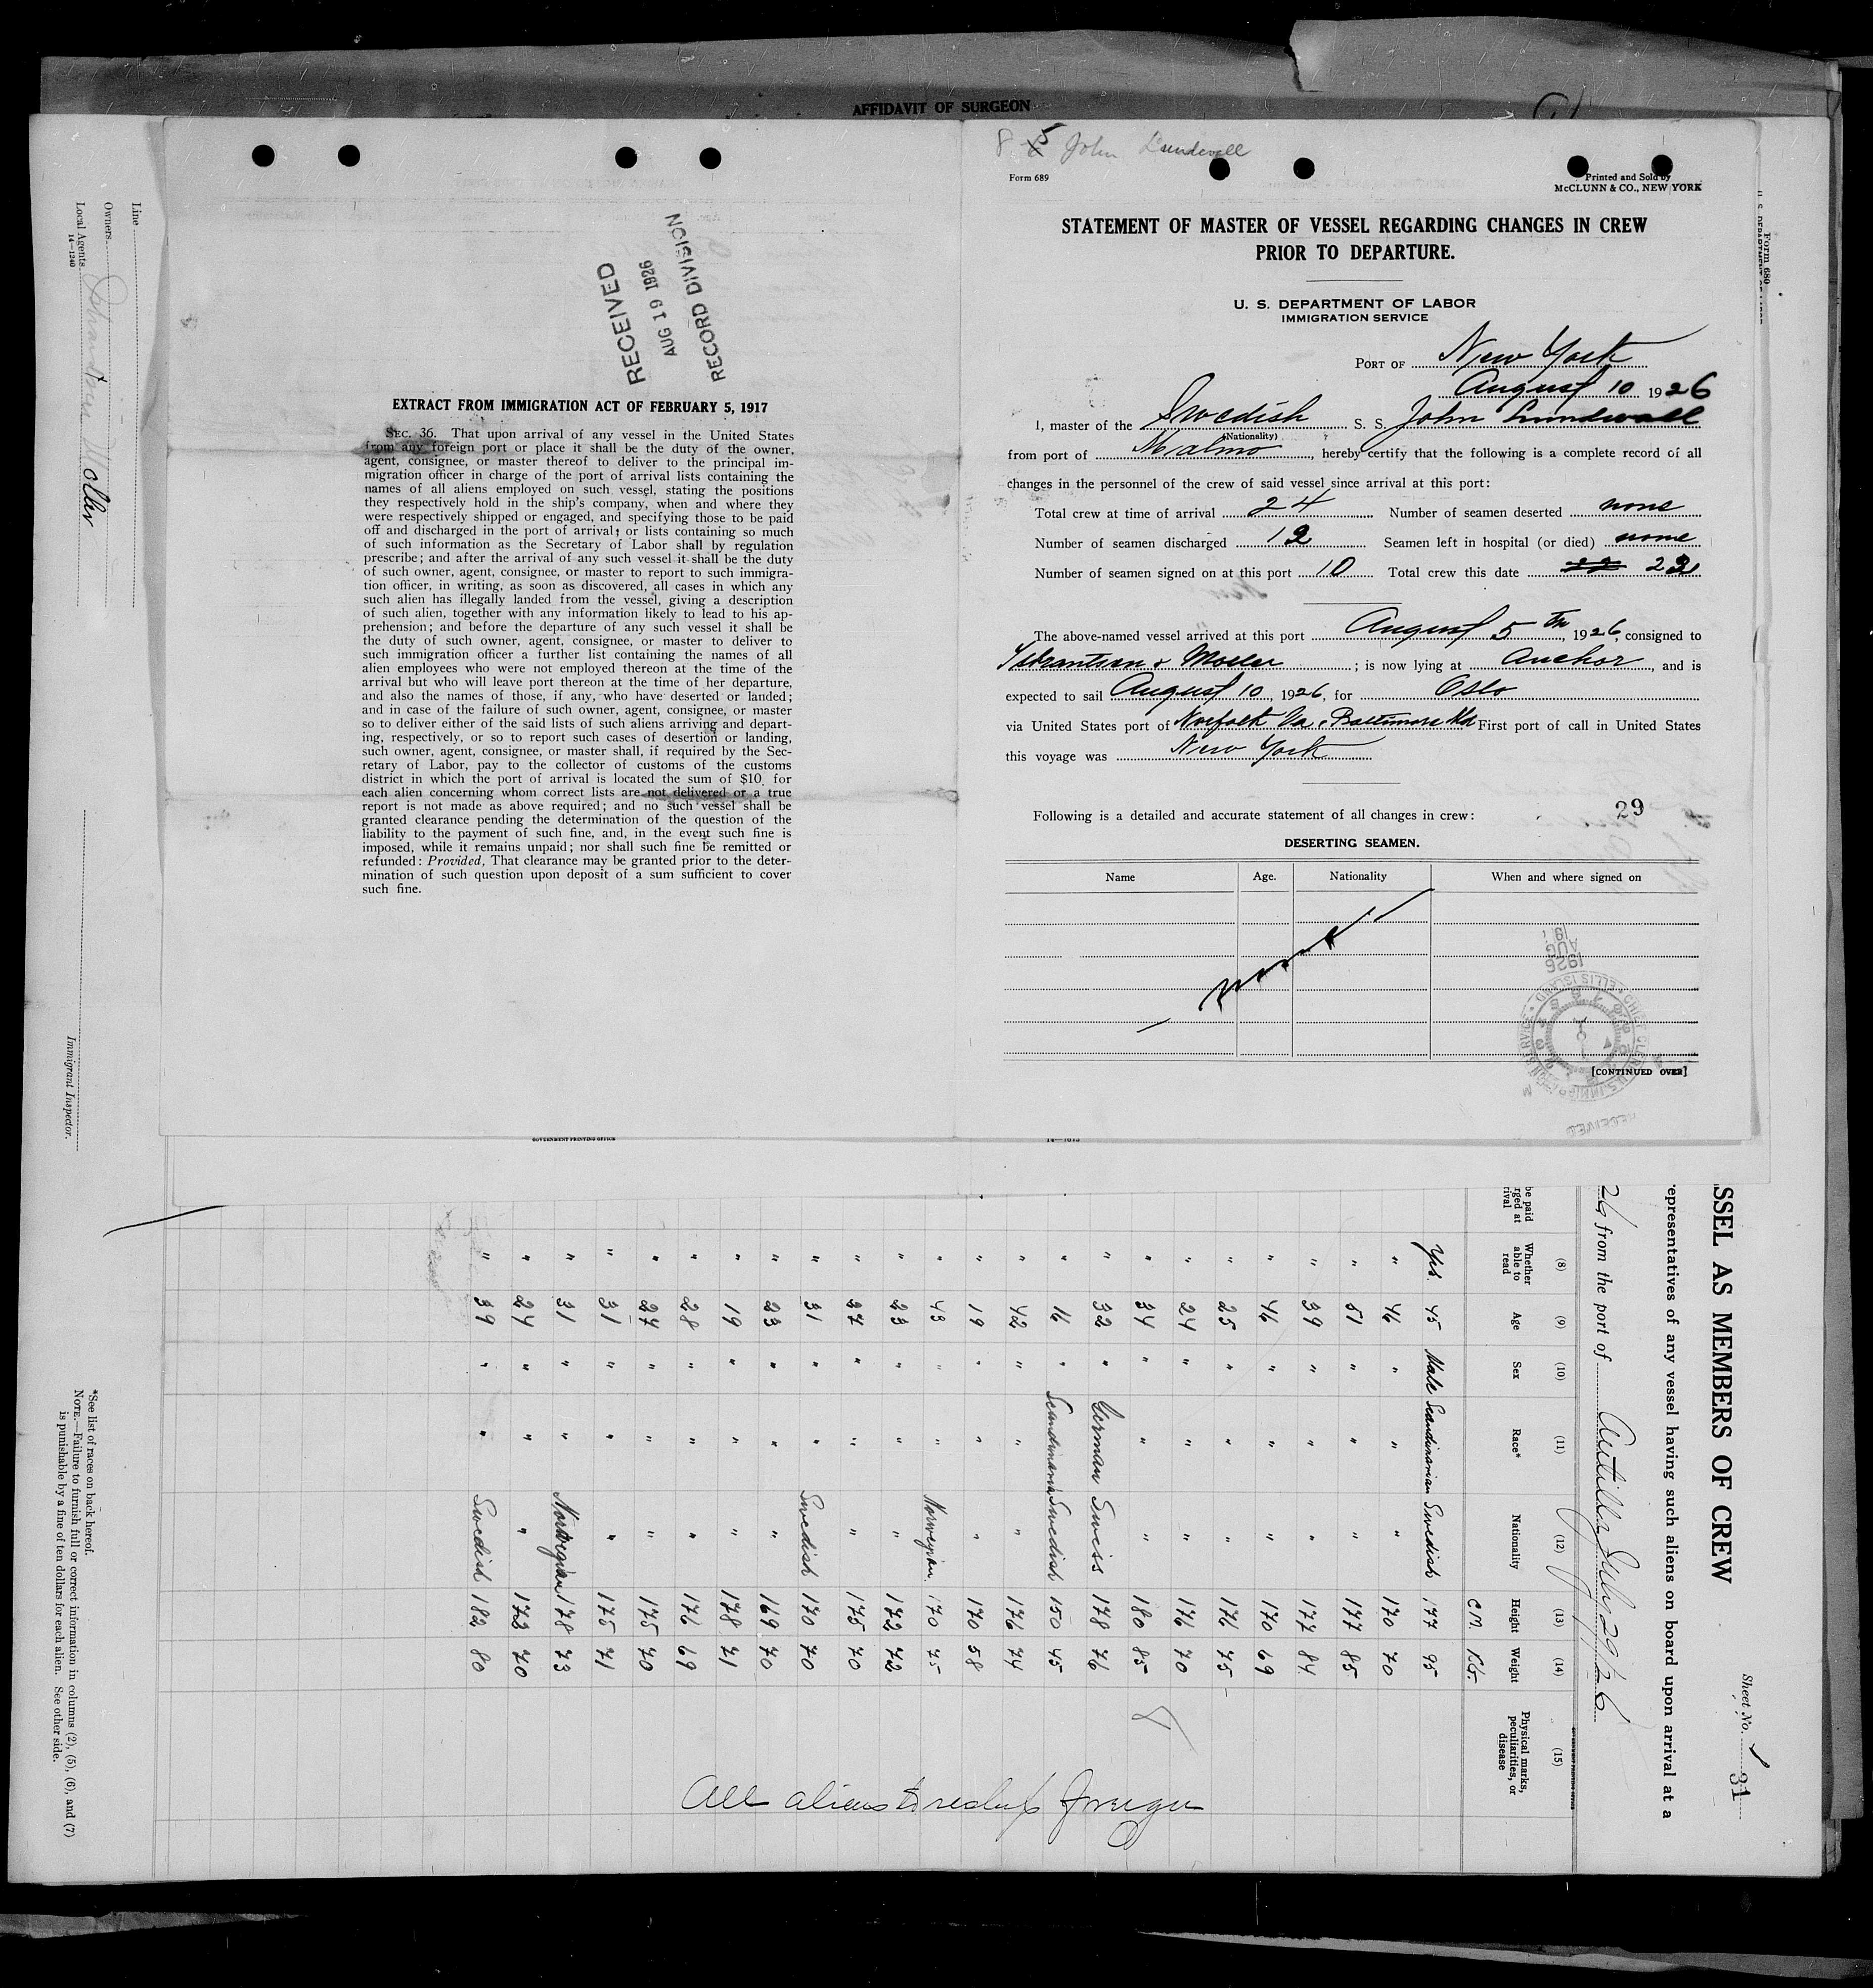 AFFIDAVIT OF SURGEON
8 5 John Lundvall
Form 689
Printed and Sold by
McCLUNN & CO., NEW YORK
STATEMENT OF MASTER OF VESSEL REGARDING CHANGES IN CREW
PRIOR TO DEPARTURE.
U. S. DEPARTMENT OF LABOR
IMMIGRATION SERVICE
PORT OF New York
August 10 1926
I, master of the Swedish S. S. John Lundvall
(Nationality)
from port of Malmo, hereby certify that the following is a complete record of all
changes in the personnel of the crew of said vessel since arrival at this port:
Total crew at time of arrival 24 Number of seamen deserted none
Number of seamen discharged 12 Seamen left in hospital (or died) none
Number of seamen signed on at this port 10 Total crew this date 22
The above-named vessel arrived at this port August 5th, 1926, consigned to
& Moller; is now lying at Anchor, and is
expected to sail August 10, 1926, for Oslo
via United States port of Norfolk Va. & Baltimore Md First port of call in United States
this voyage was New York
Following is a detailed and accurate statement of all changes in crew:
29
DESERTING SEAMEN.
Name Age. Nationality When and where signed on
none
[CONTINUED OVER]
RECEIVED
AUG 19 1926
RECORD DIVISION
EXTRACT FROM IMMIGRATION ACT OF FEBRUARY 5, 1917
SEC. 36. That upon arrival of any vessel in the United States
from any foreign port or place it shall be the duty of the owner,
agent, consignee, or master thereof to deliver to the principal im-
migration officer in charge of the port of arrival lists containing the
names of all aliens employed on such vessel, stating the positions
they respectively hold in the ship's company, when and where they
were respectively shipped or engaged, and specifying those to be paid
off and discharged in the port of arrival; or lists containing so much
of such information as the Secretary of Labor shall by regulation
prescribe; and after the arrival of any such vessel it shall be the duty
of such owner, agent, consignee, or master to report to such immigra-
tion officer, in writing, as soon as discovered, all cases in which any
such alien has illegally landed from the vessel, giving a description
of such alien, together with any information likely to lead to his ap-
prehension; and before the departure of any such vessel it shall be
the duty of such owner, agent, consignee, or master to deliver to
such immigration officer a further list containing the names of all
alien employees who were not employed thereon at the time of the
arrival but who will leave port thereon at the time of her departure,
and also the names of those, if any, who have deserted or landed;
and in case of the failure of such owner, agent, consignee, or master
so to deliver either of the said lists of such aliens arriving and depart-
ing, respectively, or so to report such cases of desertion or landing,
such owner, agent, consignee, or master shall, if required by the Sec-
retary of Labor, pay to the collector of customs of the customs
district in which the port of arrival is located the sum of $10 for
each alien concerning whom correct lists are not delivered or a true
report is not made as above required; and no such vessel shall be
granted clearance pending the determination of the question of the
liability to the payment of such fine, and, in the event such fine is
imposed, while it remains unpaid; nor shall such fine be remitted or
refunded: Provided, That clearance may be granted prior to the deter-
mination of such question upon deposit of a sum sufficient to cover
such fine.
Line
Owners
Local Agents Moller
14—1240
Immigrant Inspector.
Form 680
GOVERNMENT PRINTING OFFICE
Sheet No. 1
31
SSEL AS MEMBERS OF CREW
epresentatives of any vessel having such aliens on board upon arrival at a
26 from the port of Antilla July 29/26
(8) (9) (10) (11) (12) (13) (14) (15)
Whether able to read Age Sex Race* Nationality Height Weight Physical marks, peculiarities, or disease
CM. KG.
Yes. 45 Male Scandinavian Swedish 177 95
" 46 " " " 170 70
" 51 " " " 177 85
" 39 " " " 177 84
" 46 " " " 170 69
" 25 " " " 176 75
" 24 " " " 176 70
" 34 " " " 180 85
" 32 " German Swiss 178 76
" 16 " Scandinavian Swedish 150 45
" 42 " " " 176 74
" 19 " " " 170 58
" 43 " " Norwegian. 170 75
" 23 " " " 172 72
" 37 " " " 175 70
" 31 " " Swedish 170 70
" 23 " " " 169 70
" 19 " " " 178 71
" 28 " " " 176 69
" 27 " " " 175 70
" 31 " " " 175 71
" 31 " " Norwegian 178 73
" 24 " " " 172 70
" 39 " " Swedish 182 80
All aliens to reship foreign
*See list of races on back hereof.
NOTE.—Failure to furnish full or correct information in columns (2), (5), (6), and (7)
is punishable by a fine of ten dollars for each alien. See other side.